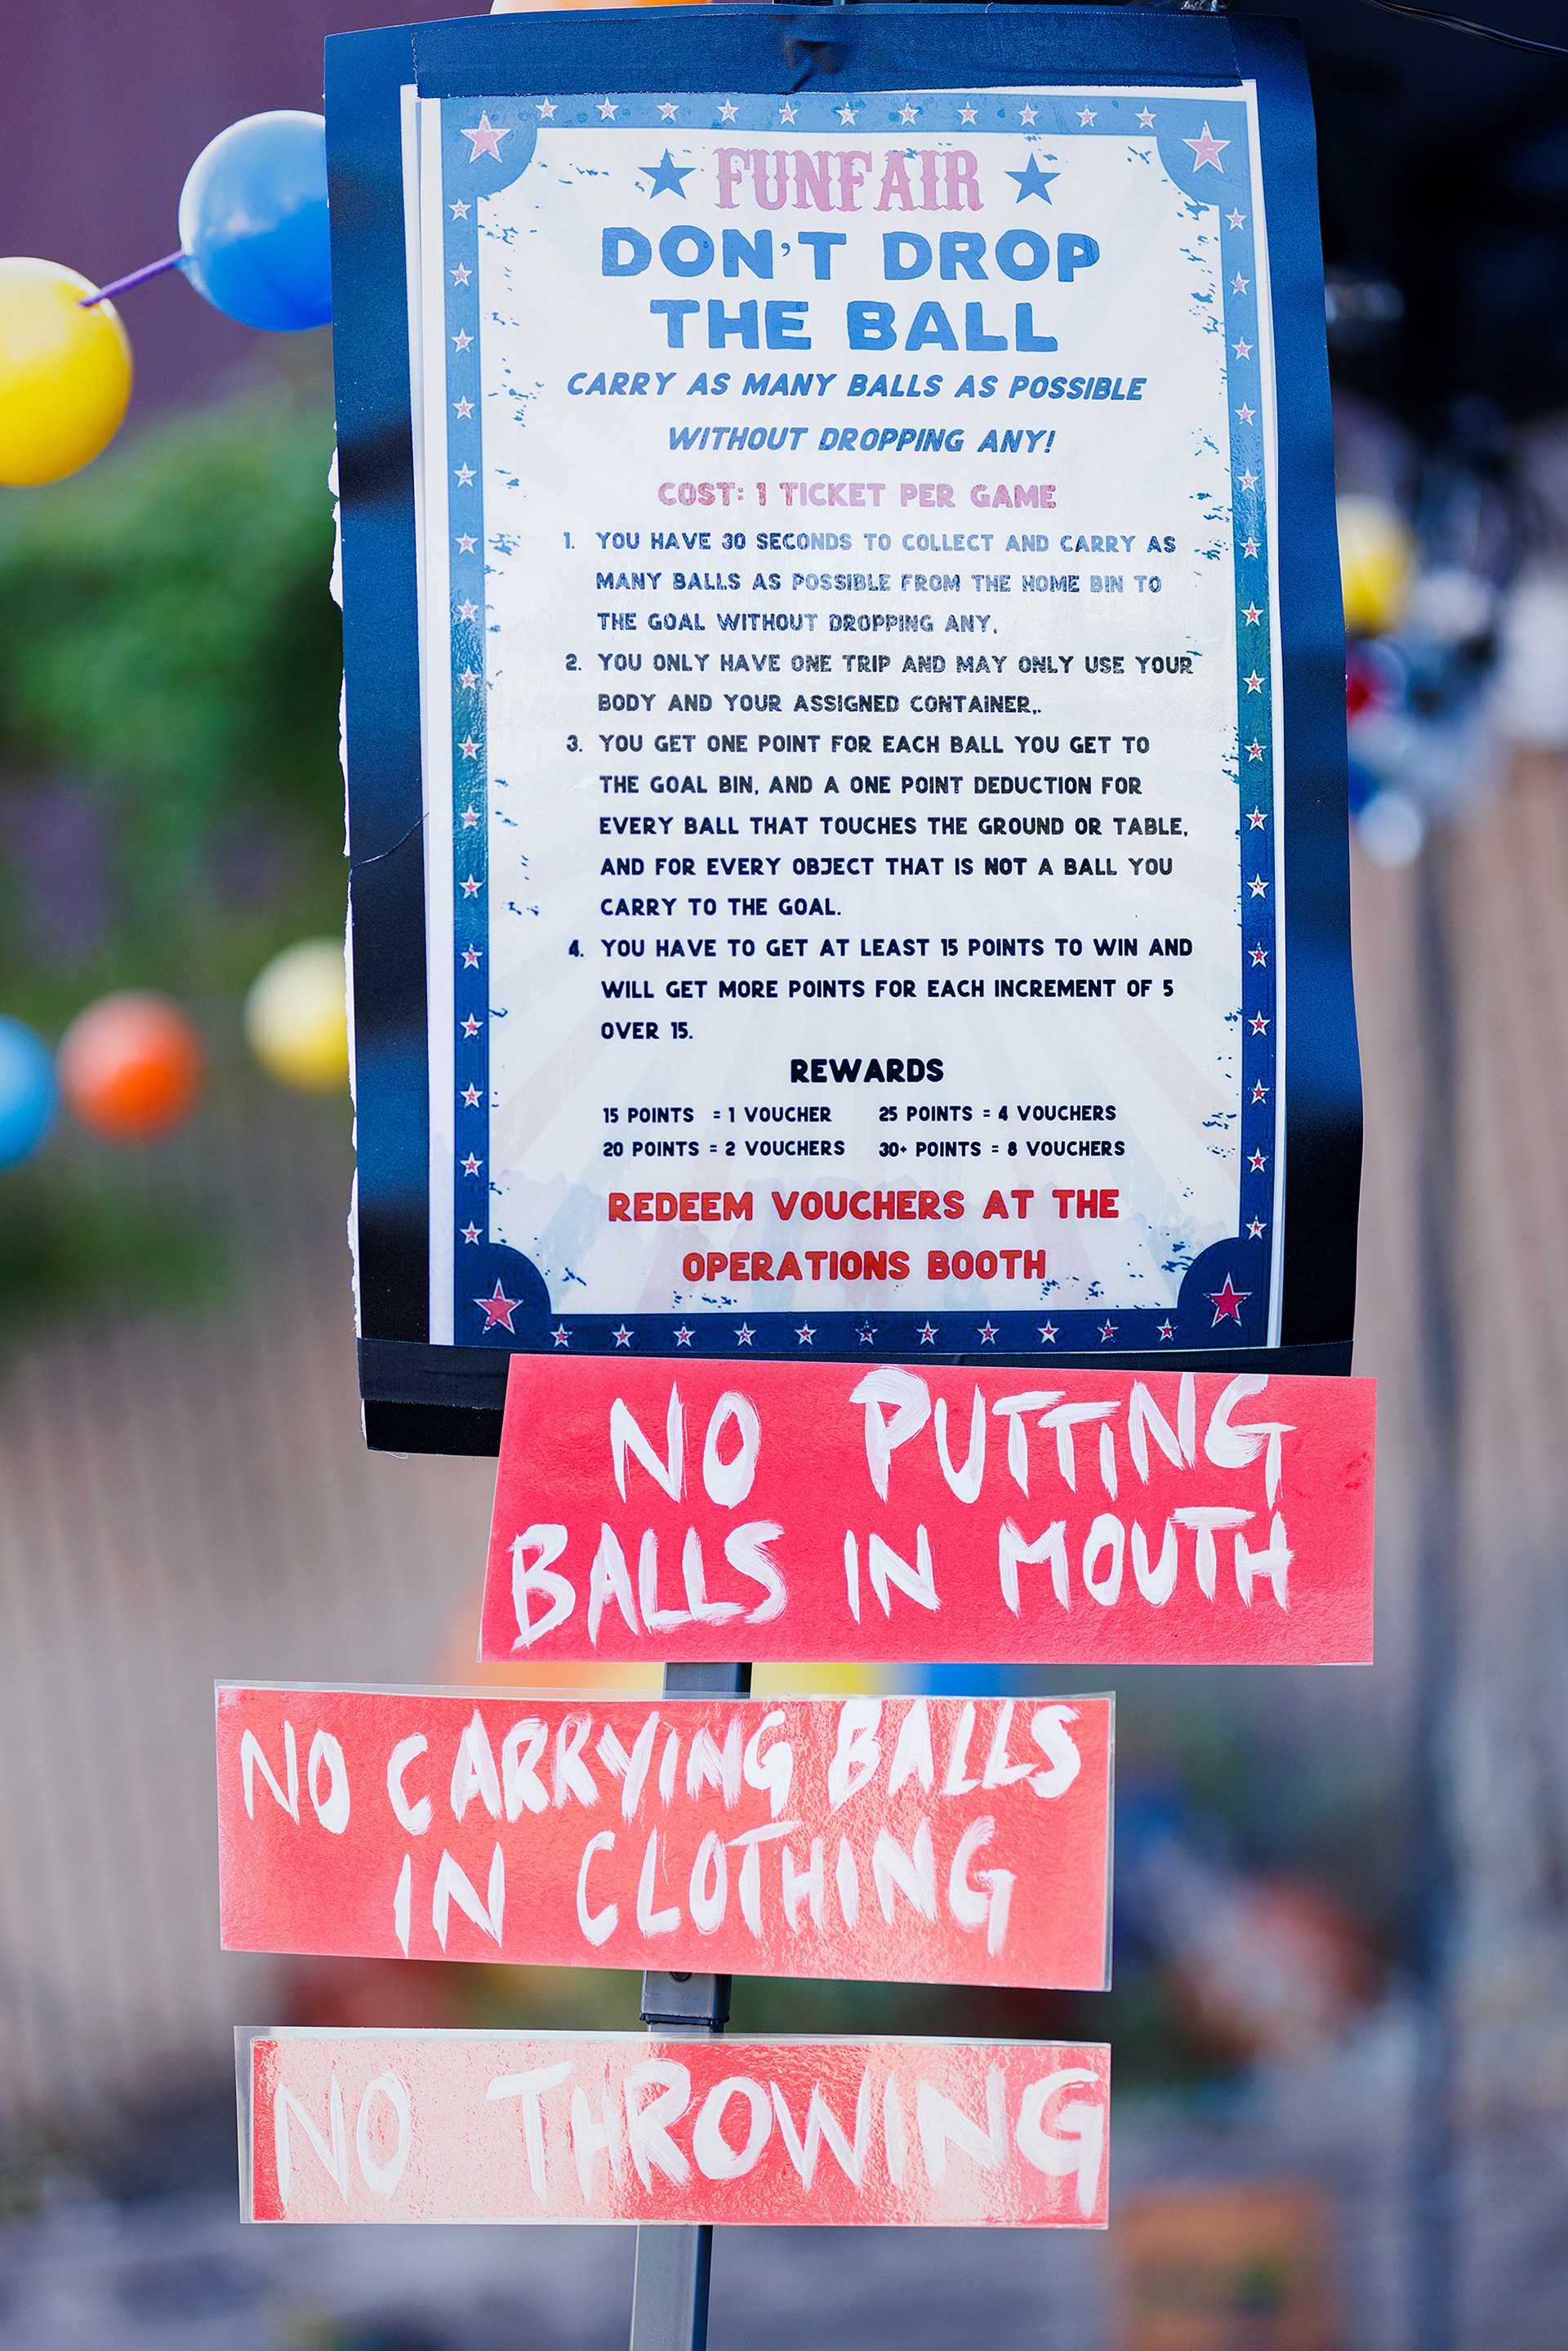 FUNFAIR
DON'T DROP
THE BALL
CARRY AS MANY BALLS AS POSSIBLE
WITHOUT DROPPING ANY!
COST: 1 TICKET PER GAME
1. YOU HAVE 30 SECONDS TO COLLECT AND CARRY AS
MANY BALLS AS POSSIBLE FROM THE HOME BIN TO
THE GOAL WITHOUT DROPPING ANY,
2. YOU ONLY HAVE ONE TRIP AND MAY ONLY USE YOUR
BODY AND YOUR ASSIGNED CONTAINER,.
3. YOU GET ONE POINT FOR EACH BALL YOU GET TO
THE GOAL BIN, AND A ONE POINT DEDUCTION FOR
EVERY BALL THAT TOUCHES THE GROUND OR TABLE,
AND FOR EVERY OBJECT THAT IS NOT A BALL YOU
CARRY TO THE GOAL.
4. YOU HAVE TO GET AT LEAST 15 POINTS TO WIN AND
WILL GET MORE POINTS FOR EACH INCREMENT OF 5
OVER 15.
REWARDS
15 POINTS = 1 VOUCHER 25 POINTS = 4 VOUCHERS
20 POINTS = 2 VOUCHERS 30+ POINTS = 8 VOUCHERS
REDEEM VOUCHERS AT THE
OPERATIONS BOOTH
NO PUTTING
BALLS IN MOUTH
NO CARRYING BALLS
IN CLOTHING
NO THROWING